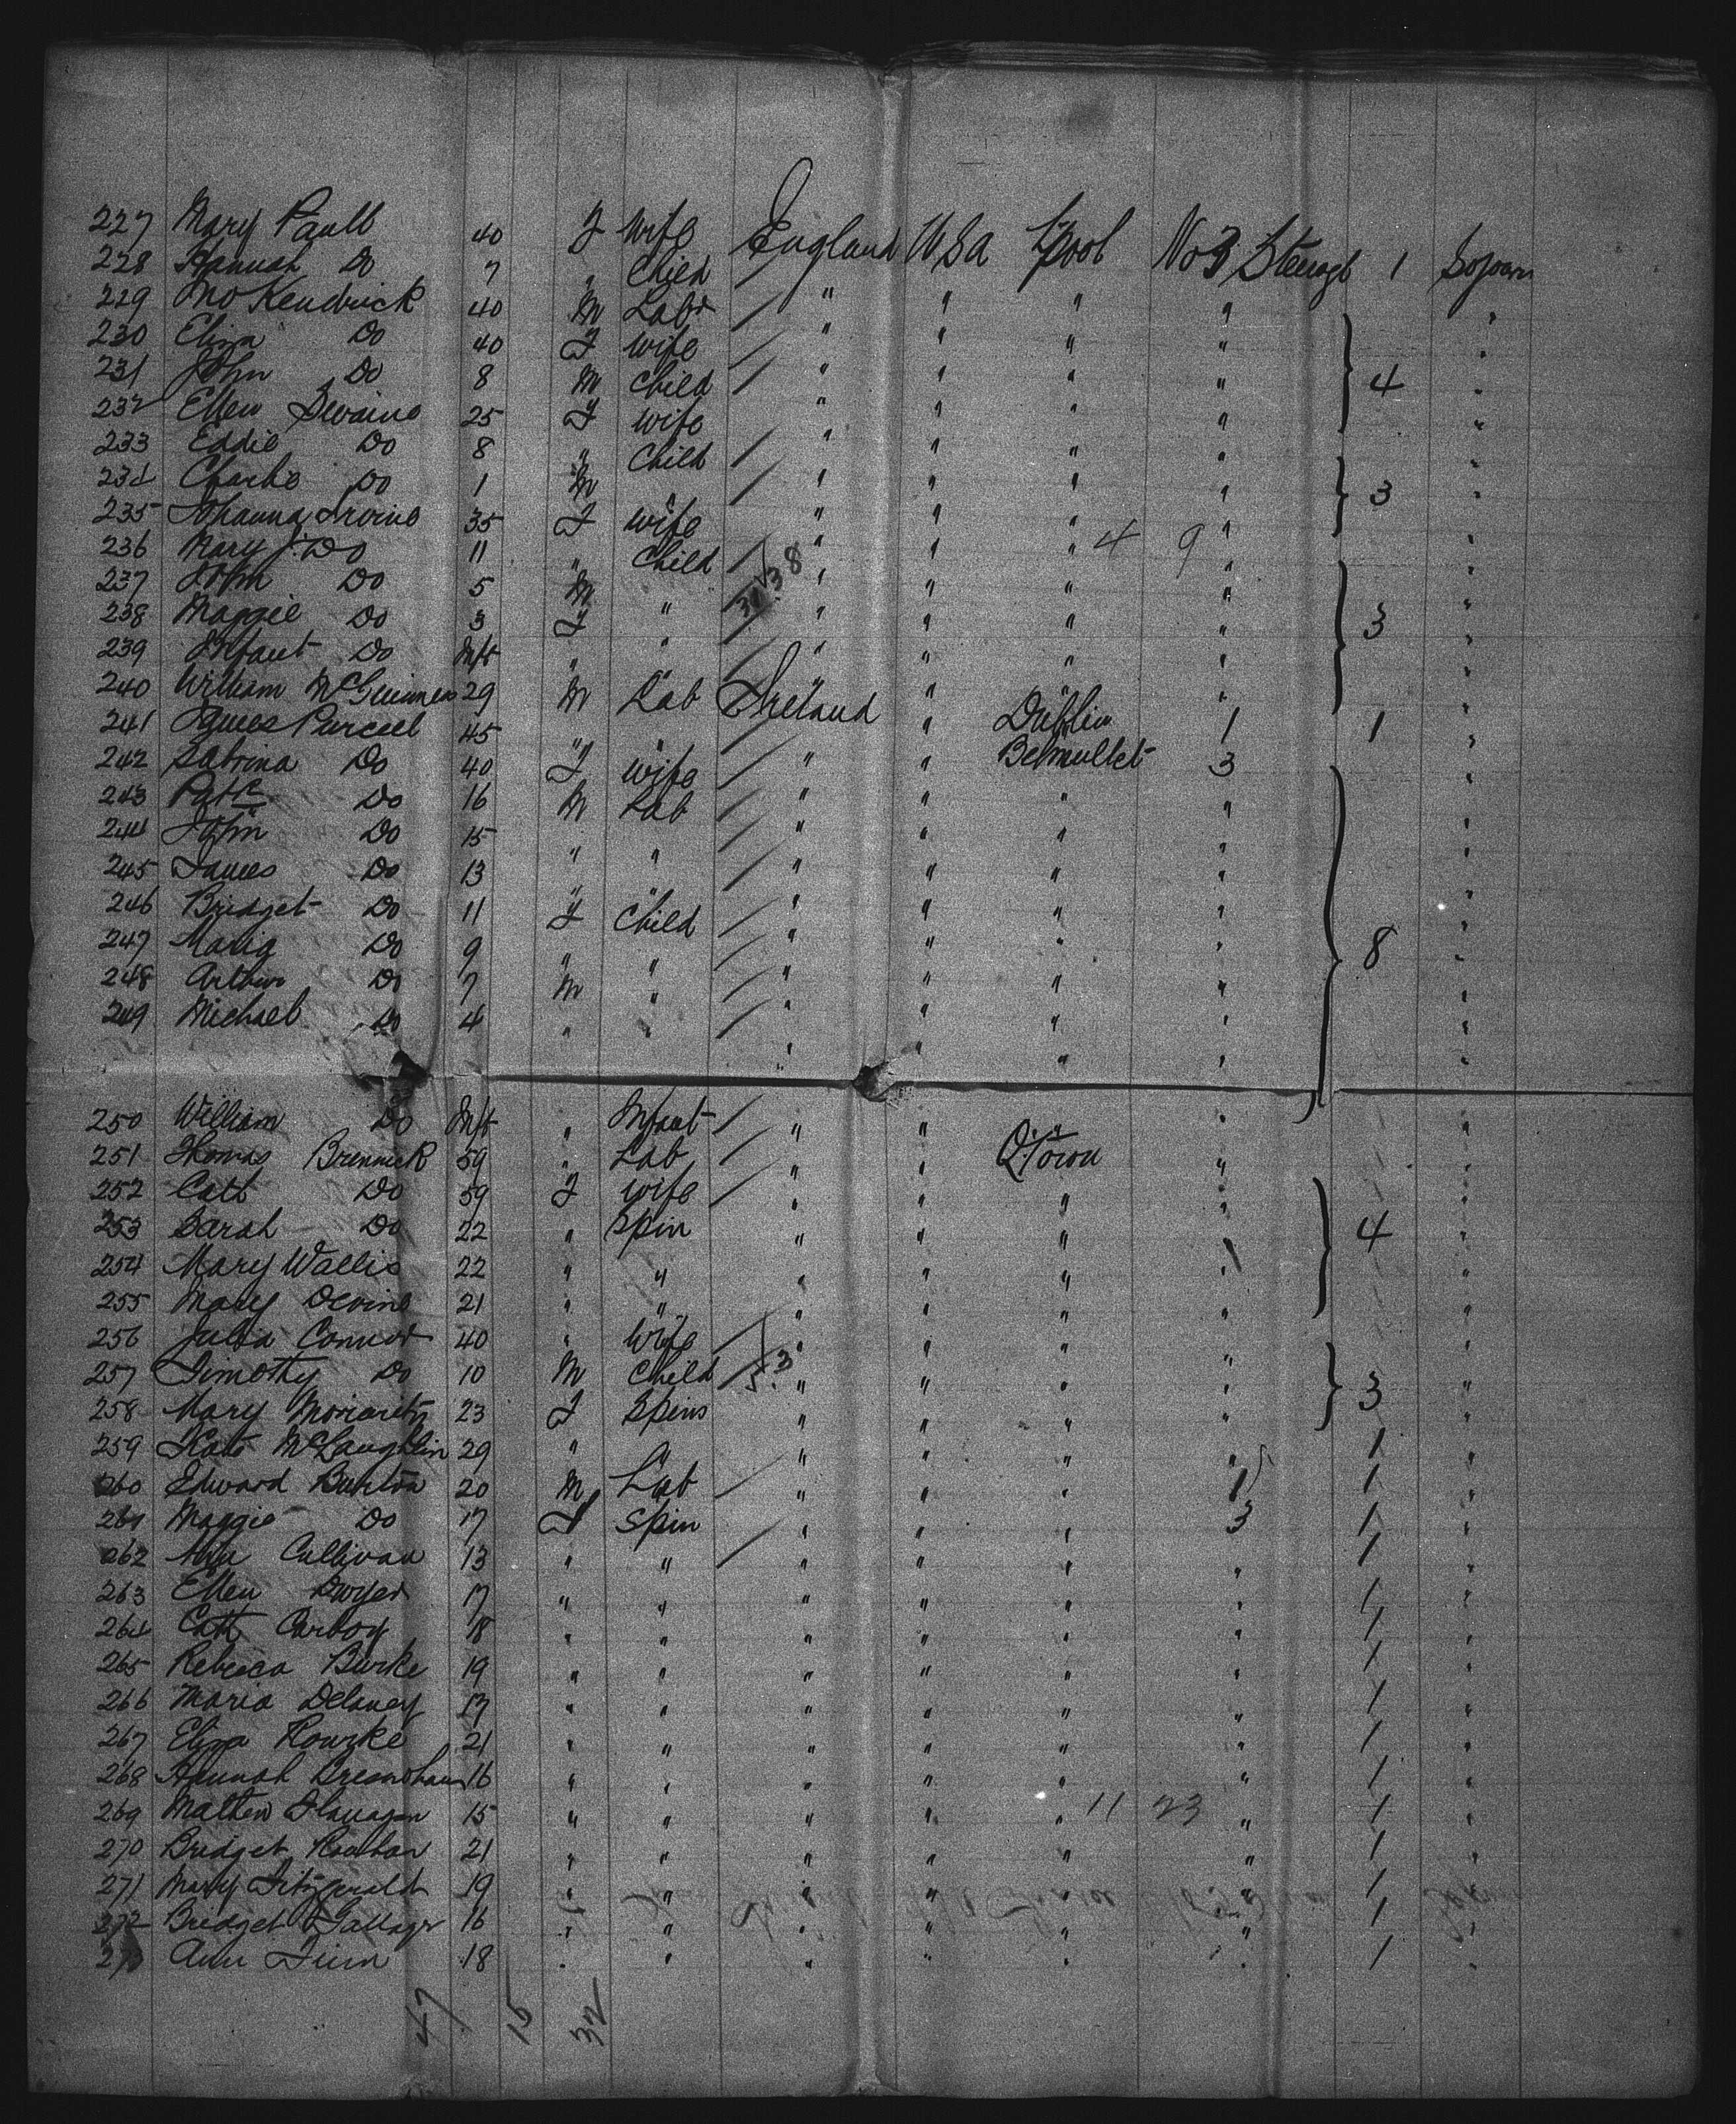 227 Mary Paull 40 F Wife England USA L'pool No 3 Steerage 1 Sojourn
228 Hannah Do 7 " Child / " " " " "
229 Kendrick 40 M Labr / " " " " "
230 Eliza Do 40 F Wife / " " " " "
231 John Do 8 M Child / " " " " 4 "
232 Ellen 25 F Wife " " " " "
233 Eddie Do 8 " Child / " " " " "
234 Charlie Do 1 M " / " " " " 3 "
235 Johanna Irvine 35 F Wife " " " " "
236 Mary J. Do 11 " Child / " " " 4 9 " "
237 John Do 5 M " / " " " " "
238 Maggie Do 3 F " / " " " " 3 "
239 Infant Do Inft " " / " " " " "
240 William McGuinness 29 M Lab Ireland " Dublin 1 1 "
241 James Purcell 45 " " / " " Belmullet 3 "
242 Sabrina Do 40 F Wife / " " " " "
243 Patk Do 16 M Lab / " " " " "
244 John Do 15 " " / " " " " "
245 James Do 13 " " / " " " " "
246 Bridget Do 11 F Child / " " " " "
247 Maria Do 9 " " / " " " " 8 "
248 Arthur Do 7 M " / " " " " "
249 Michael Do 4 " " / " " " " "
250 William Do Inft " Infant / " " " " "
251 Thomas Brennick 59 " Lab / " " Q'Town " "
252 Cath Do 59 F Wife / " " " " "
253 Sarah Do 22 " Spin " " " " 4 "
254 Mary Wallis 22 " " " " " " "
255 Mary Devine 21 " " " " " " "
256 Julia Connor 40 " Wife / " " " " "
257 Timothy Do 10 M Child / " " " " 3 "
258 Mary Moriarty 23 F Spins " " " " "
259 Kate McLaughlin 29 " " " " " 1 "
260 Edward Burton 20 M Lab / " " " 1 1 "
261 Maggie Do 17 F Spin / " " " 3 1 "
262 Cullivan 13 " " " " " " 1 "
263 Ellen Dwyer 17 " " " " " " 1 "
264 Cath 18 " " " " " " 1 "
265 Rebecca Burke 19 " " " " " " 1 "
266 Maria Delaney 17 " " " " " " 1 "
267 Eliza Rourke 21 " " " " " " 1 "
268 Hannah 16 " " " " " " 1 "
269 Mathew Flanagan 15 " " " " " 11 23 " 1 "
270 Bridget 21 " " " " " " 1 "
271 Mary Fitzgerald 19 " " " " " " 1 "
272 Bridget Gallager 16 " " " " " " 1 "
273 Ann 18 " " " " " " 1 "
47 15 32